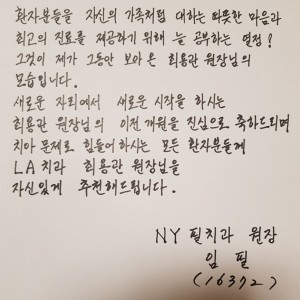 환자분들을 자신의 가족처럼 대하는 따뜻한 마음과
최고의 진료를 제공하기 위해 늘 공부하는 열정!
그것이 제가 그동안 보아온 최용관 원장님의
모습입니다.
새로운 자리에서 새로운 시작을 하시는
최용관 원장님의 이전개원을 진심으로 축하드리며
치아 문제로 힘들어하시는 모든 환자분들께
LA치과 최용관 원장님을
자신있게 추천해드립니다.
NY 필치과 원장
임 필
(16372)